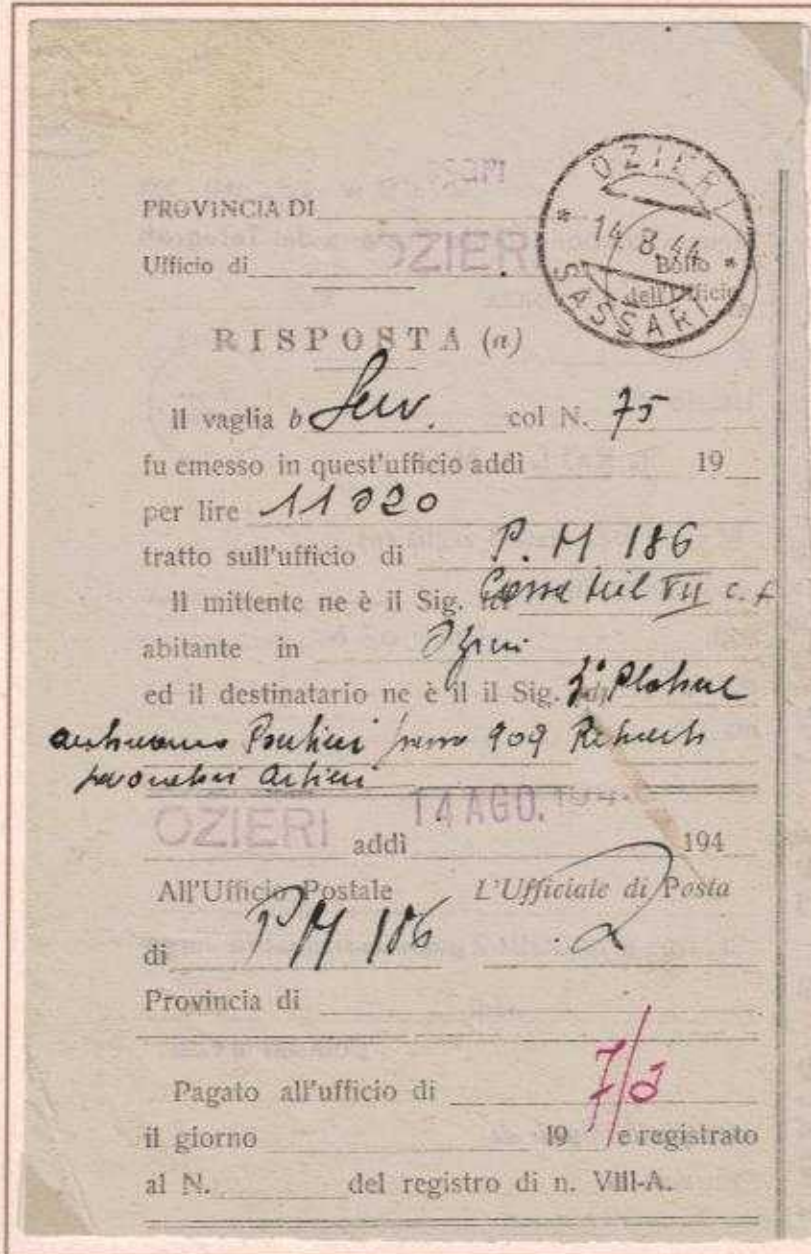 OZIERI
14.8.44
SASSARI
PROVINCIA DI
Ufficio di OZIERI
Bollo
dell'Ufficio
RISPOSTA (a)
il vaglia b Serv. col N. 75
fu emesso in quest'ufficio addì 19
per lire 11020
tratto sull'ufficio di P. M 186
Il mittente ne è il Sig. Cassa Mil VII
abitante in Ozieri
ed il destinatario ne è il il Sig. 2°
909
OZIERI addì 14 AGO. 194
All'Ufficio Postale L'Ufficiale di Posta
di PM 186
Provincia di
Pagato all'ufficio di
il giorno 19 e registrato
al N. del registro di n. VIII-A.